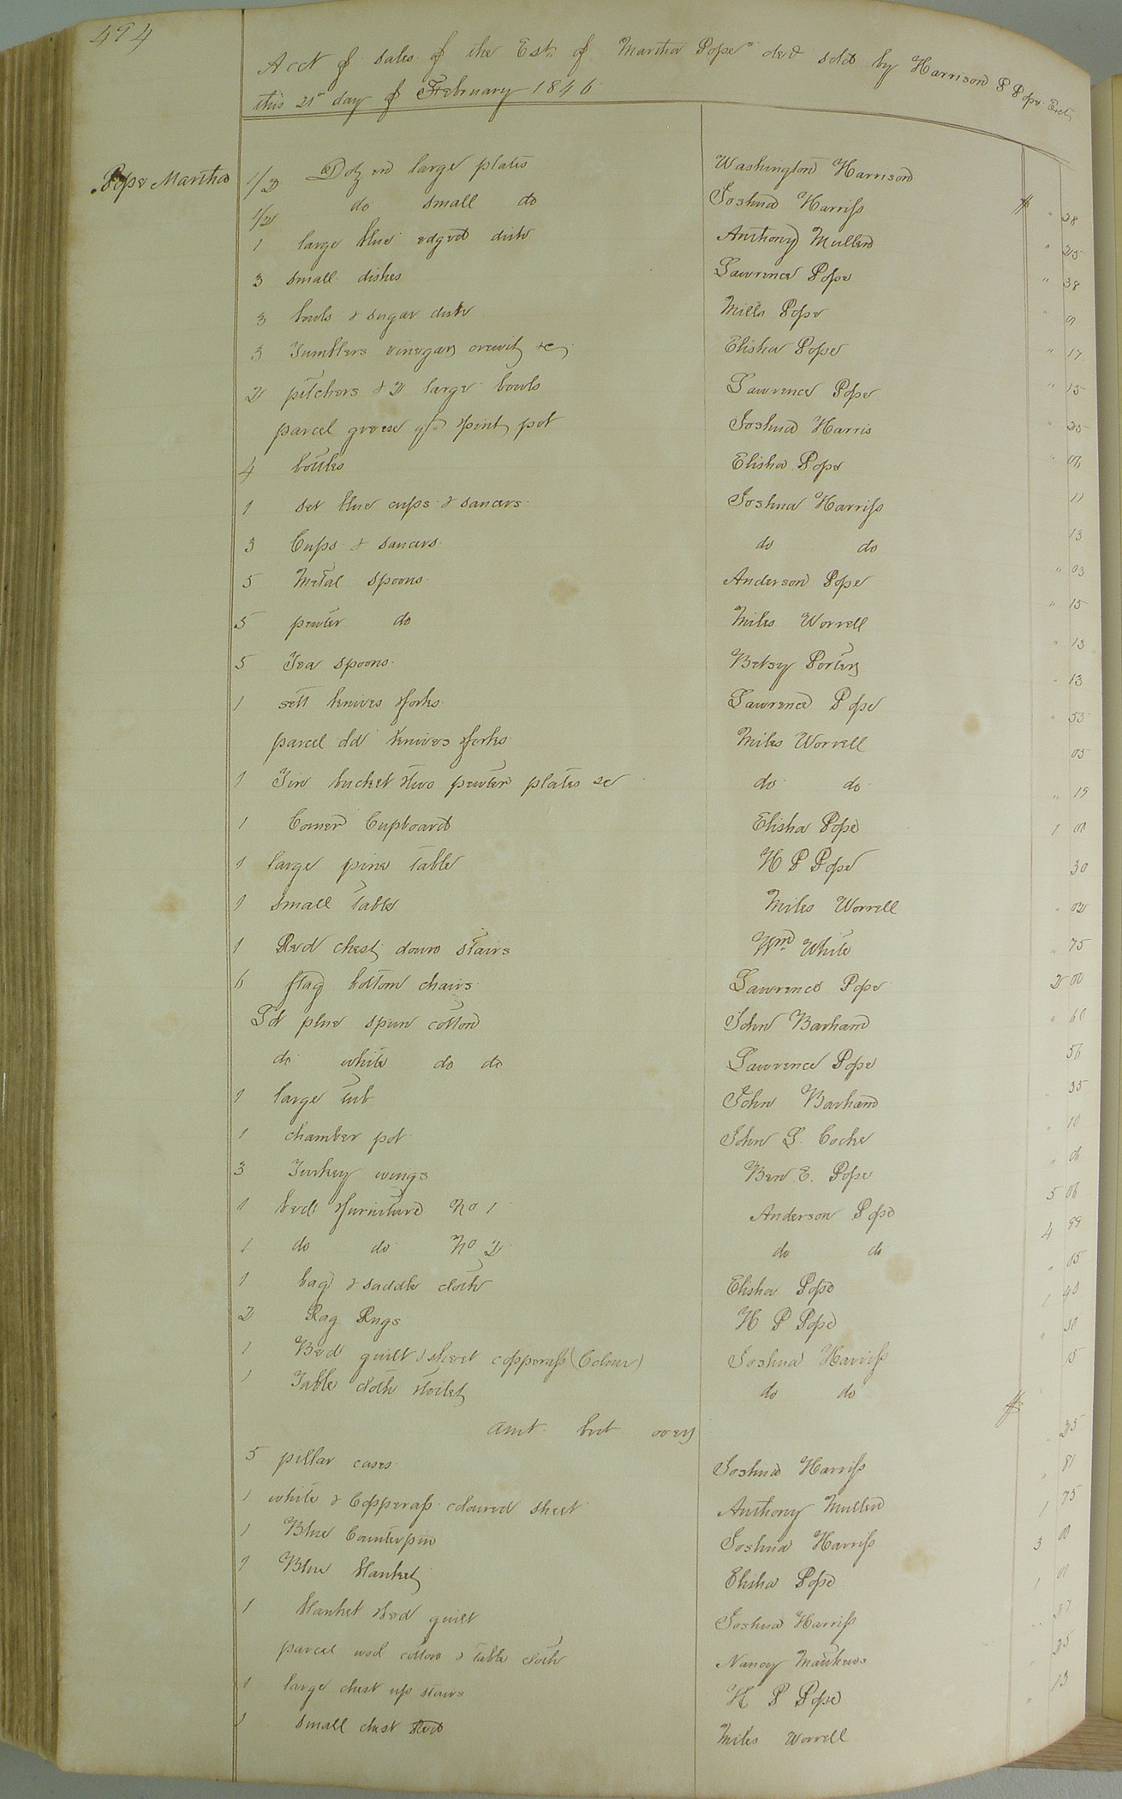 494
Acct of Sales of the Est. of Martha Pope decd sold by Harrison P Pope Exct
this 21st day of February 1846
Pope Martha
1/2 Dozen large plates Washington Harrison
1/2 do small do Joshua Harriss $ " 28
1 large blue edged dish Anthony Mullen " 25
3 small dishes Lawrence Pope " 38
3 bowls & sugar dish Mills Pope
3 Tumblers vinegar cruet &c Elisha Pope " 17
2 pitchers & 2 large bowls Lawrence Pope " 15
parcel geese pint pot Joshua Harris " 25
4 bottles Elisha Pope " 06
1 set blue cups & saucers Joshua Harriss 11
3 Cups & saucers do do 13
5 Metal spoons Anderson Pope " 03
5 pewter do Miles Worrell " 15
5 Tea spoons Betsy Porter 13
1 sett knives & forks Lawrence Pope 13
parcel old knives & forks Miles Worrell 53
1 Tin bucket & two pewter plates &c do do 05
1 Corner Cupboard Elisha Pope " 19
1 large pine table H P Pope 1 01
1 small table Miles Worrell 30
1 Red chest down stairs Wm White 02
6 flag bottom chairs Lawrence Pope 75
Lot blue spun cotton John Barham 2 00
do white do do Lawrence Pope 60
1 large tub John Barham 56
1 chamber pot John L. Cocke 35
3 Turkey wings Ben. E. Pope 10
1 bed & furniture No 1 Anderson Pope 06
1 do do No 2 do do 5 06
1 bag & saddle cloth Elisha Pope 4 99
2 Rag Rugs H P Pope 05
1 Bed quilt & sheet copperass (Colour) Joshua Harriss 1 43
1 Table cloth & toilet do do 50
Amt brt over $ 15
5 pillar cases Joshua Harriss 25
1 white & Copperass coloured sheet Anthony Mullen 81
1 Blue Counterpin Joshua Harriss 1 75
1 Blue blanket Elisha Pope 3 00
1 blanket & bed quilt Joshua Harriss 1 01
parcel wool cotton & table cloth Nancy Mathews 27
1 large chest up stairs H P Pope 25
1 small chest Red Miles Worrell " 13